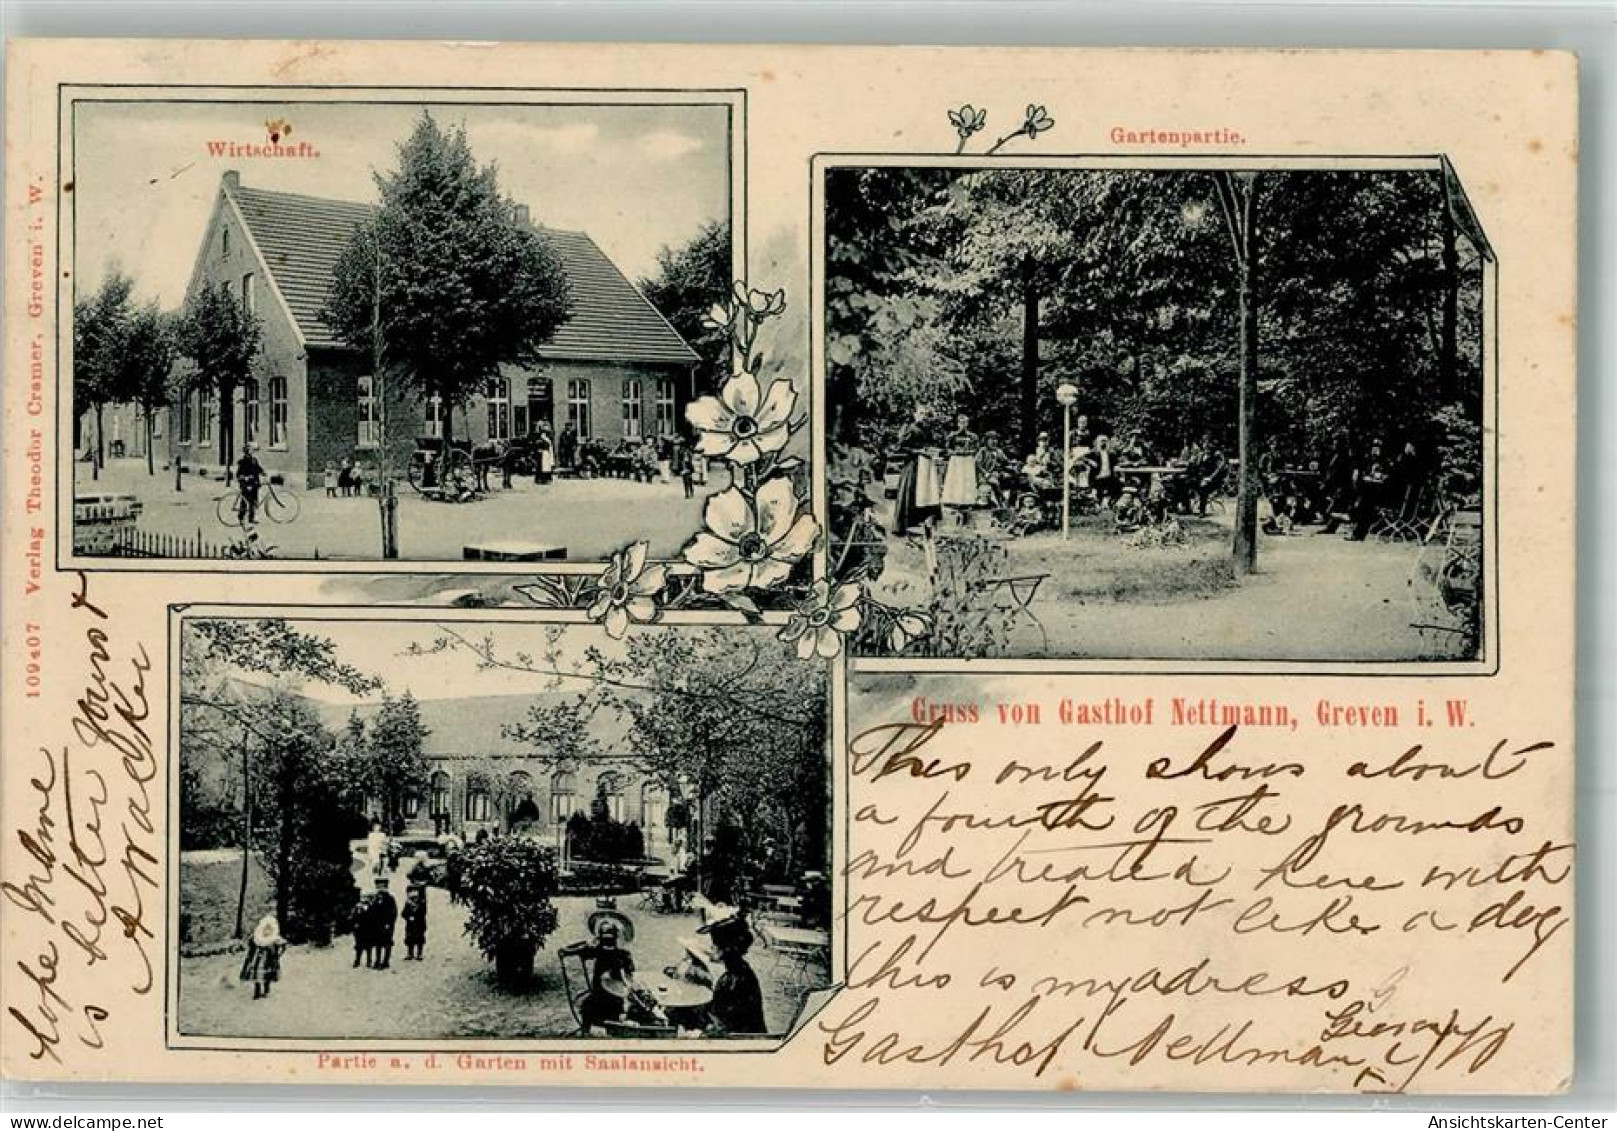 Wirtschaft.
Gartenpartie.
109407 Verlag Theodor Cramer, Greven i. W.
Gruss von Gasthof Nettmann, Greven i. W.
Partie a. d. Garten mit Saalansicht.
This only shows about
a fourth of the grounds
and treated here with
respect not like a dog
this is my adress
Gasthof Nettman
hope Mdme
is better yours t
A Walcker
Ansichtskarten-Center